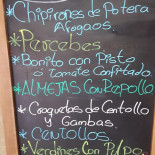 *Chipirones de Potera
Afogaos
*Percebes
*Bonito con Pisto
o Tomate Confitado
*ALMEJAS Con Repollo
*Croquetas de Centollo
y Gambas
*CENTOLLOS
*Verdines Con Pulpo